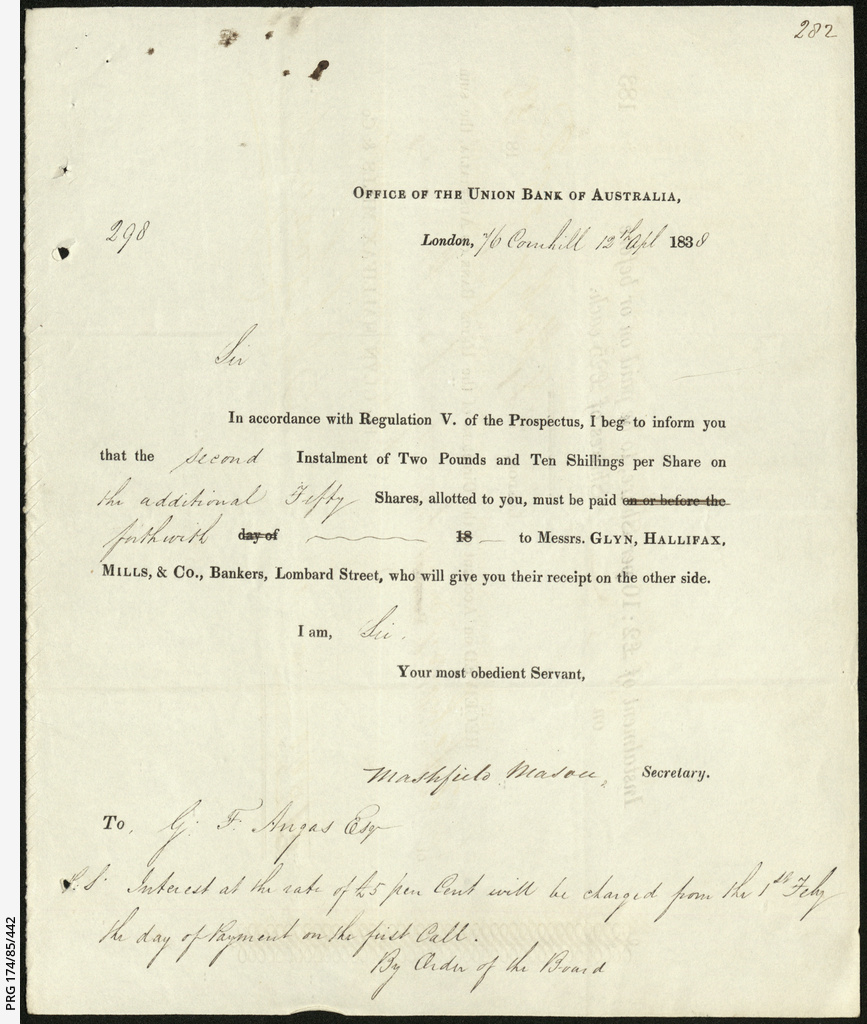 282
OFFICE OF THE UNION BANK OF AUSTRALIA,
298
London, 7/6 Cornhill 12th Apl 1838
Sir
In accordance with Regulation V. of the Prospectus, I beg to inform you
that the second Instalment of Two Pounds and Ten Shillings per Share on
the additional Fifty Shares, allotted to you, must be paid on or before the
forthwith day of 18 to Messrs. GLYN, HALLIFAX,
MILLS, & CO., Bankers, Lombard Street, who will give you their receipt on the other side.
I am, Sir.
Your most obedient Servant,
Mason, Secretary.
To, G. F. Angas Esqr
P.S. Interest at the rate of £5 per Cent will be charged from the 1st Feby
the day of Payment on the first Call.
By Order of the Board
PRG 174/85/442